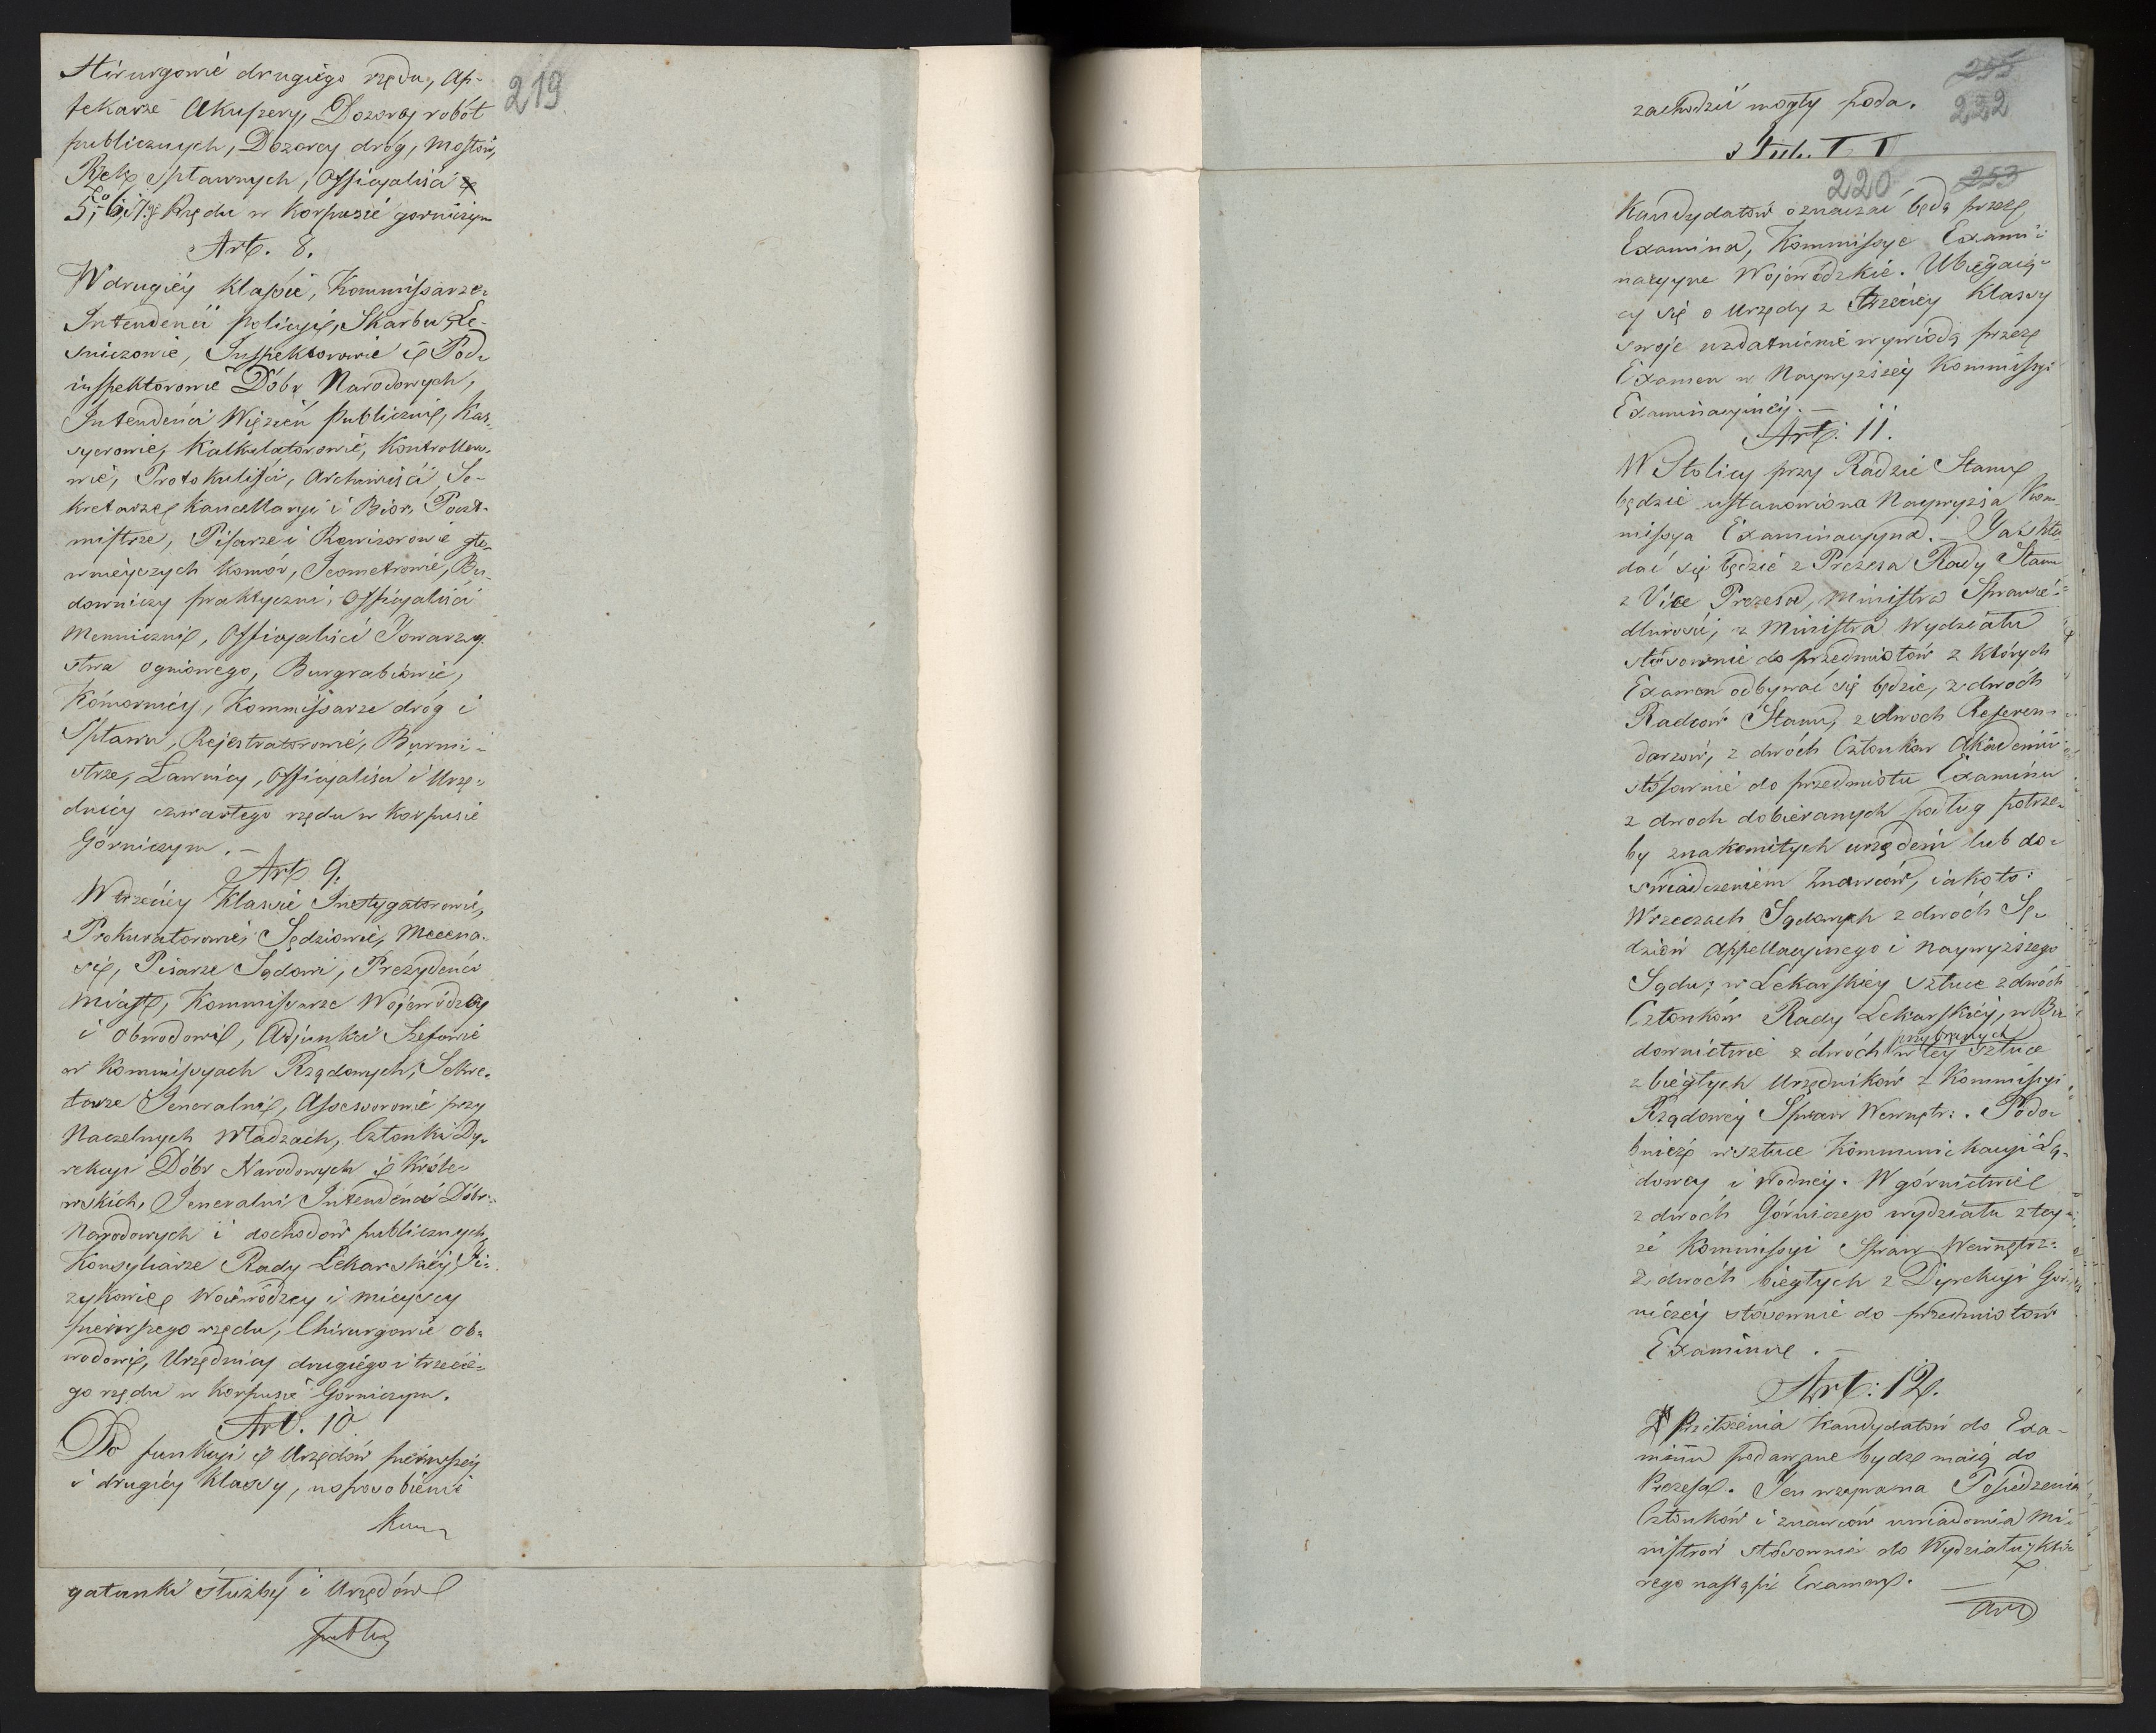 219
Hirurgowie drugiego rzędu, Ap-
tekarze Akuszery, Dozorcy robót
publicznych, Dozorcy dróg, mostów,
Rzek spławnych, Officyaliści
5, 6, i 7go Rzędu w Korpusie gorniczym
Art. 8.
W drugiéy klassie, Kommissarze
Intendenci policyi, Skarbu, Le-
śniczowie, Inspektorowie i Pod-
inspektorowie Dóbr Narodowych,
Intendenci Więzień publicznych, Kas-
syerowie, Kalkulatorowie, Kontrollero-
wie, Protokuliści, Archiwiści, Se-
kretarze Kancellaryi i Biór, Poczt-
mistrze, Pisarze i Rewizorowie głó-
wnieyszych komór, Jeometrowie, Bu-
downiczy praktyczni, Officyaliści
Menniczni, Officyaliści Towarzy-
stwa ogniowego, Burgrabiowie,
Komornicy, Kommissarze dróg i
Spławu, Rejestratorowie, Burmi-
strze, Ławnicy, Officyaliści i Urzę-
dnicy czwartego rzędu w Korpusie
Górniczym. —
Art. 9.
W trzeciéy Klassie Instygatorowie,
Prokuratorowie, Sędziowie, Mecena-
si, Pisarze Sądowi, Prezydenci
miast, Kommissarze Wojewódzcy
i Obwodowi, Adjunkci Szefowie
w Kommissyach Rządowych, Sekre-
tarze Jeneralni, Assessorowie przy
Naczelnych Władzach, Członki Dy-
rekcyi Dóbr Narodowych i Króle-
wskich, Jeneralni Intendenci Dóbr
Narodowych i dochodów publicznych,
Konsyliarze Rady Lekarskiéy, Fi-
zykowie Woiewódzcy i mieyscy
pierwszego rzędu, Chirurgowie ob-
wodowi, Urzędnicy drugiego i trzecie-
go rzędu w Korpusie Górniczym.
Art. 10.
Do funkcyi i Urzędów pierwszéy
i drugiéy Klassy, usposobienie
Kan
gatunki służby i Urzędów
publi
255
222
zachodzić mogły poda.
220
253
Kandydatów oznaczać będą przez
Examina, Kommissye Exami-
nacyyne Wojewódzkie. Ubiegaią-
cy się o Urzędy z trzeciéy Klassy
swoje uzdatnienie wywiodą przez
Examen w Naywyższéy Kommissyi
Examinacyinéy. —
Art. 11.
W Stolicy przy Radzie Stanu
będzie ustanowiona Naywyższa Kom-
missya Examinacyyna. — Ta skła-
dać się będzie z Prezesa Rady Stanu
z Vice Prezesa, Ministra Sprawie-
dliwości, z Ministra Wydziału
stósownie do przedmiotów z których
Examen odbywać się będzie, z dwóch
Radców Stanu, z dwoch Referen-
darzów, z dwóch Członków Akademii
stósownie do przedmiotu Examinu
z dwoch dobieranych podług potrze-
by znakomitych urzędem lub do-
świadczeniem Znawców, iako to:
W rzeczach Sądowych z dwoch Sę-
dziów Appellacyinego i Naywyższego
Sądu; w Lekarskiéy sztuce z dwóch
Członków Rady Lekarskiéy, w Bu-
downictwie z dwóch przybranych w tey sztuce
biegłych Urzędników z Kommissyi
Rządowéy Spraw Wewnętr:. Podo-
bnież w sztuce Kommunikacyi Lą-
dowey i Wodnéy. W górnictwie
z dwóch Górniczego wydziału z tey-
że Kommissyi Spraw Wewnętrz:
z dwóch biegłych z Dyrekcyi Gór-
niczéy stósownie do przedmiotów
Examinu. —
Art: 12.
Przełożenia Kandydatów do Exa-
minu podawane bydz maią do
Prezesa. Ten wzywa na Posiedzenia
Członków i znawców uwiadomia Mi-
nistrów stósownie do Wydziału, z któ-
rego nastąpi Examen. —
Art